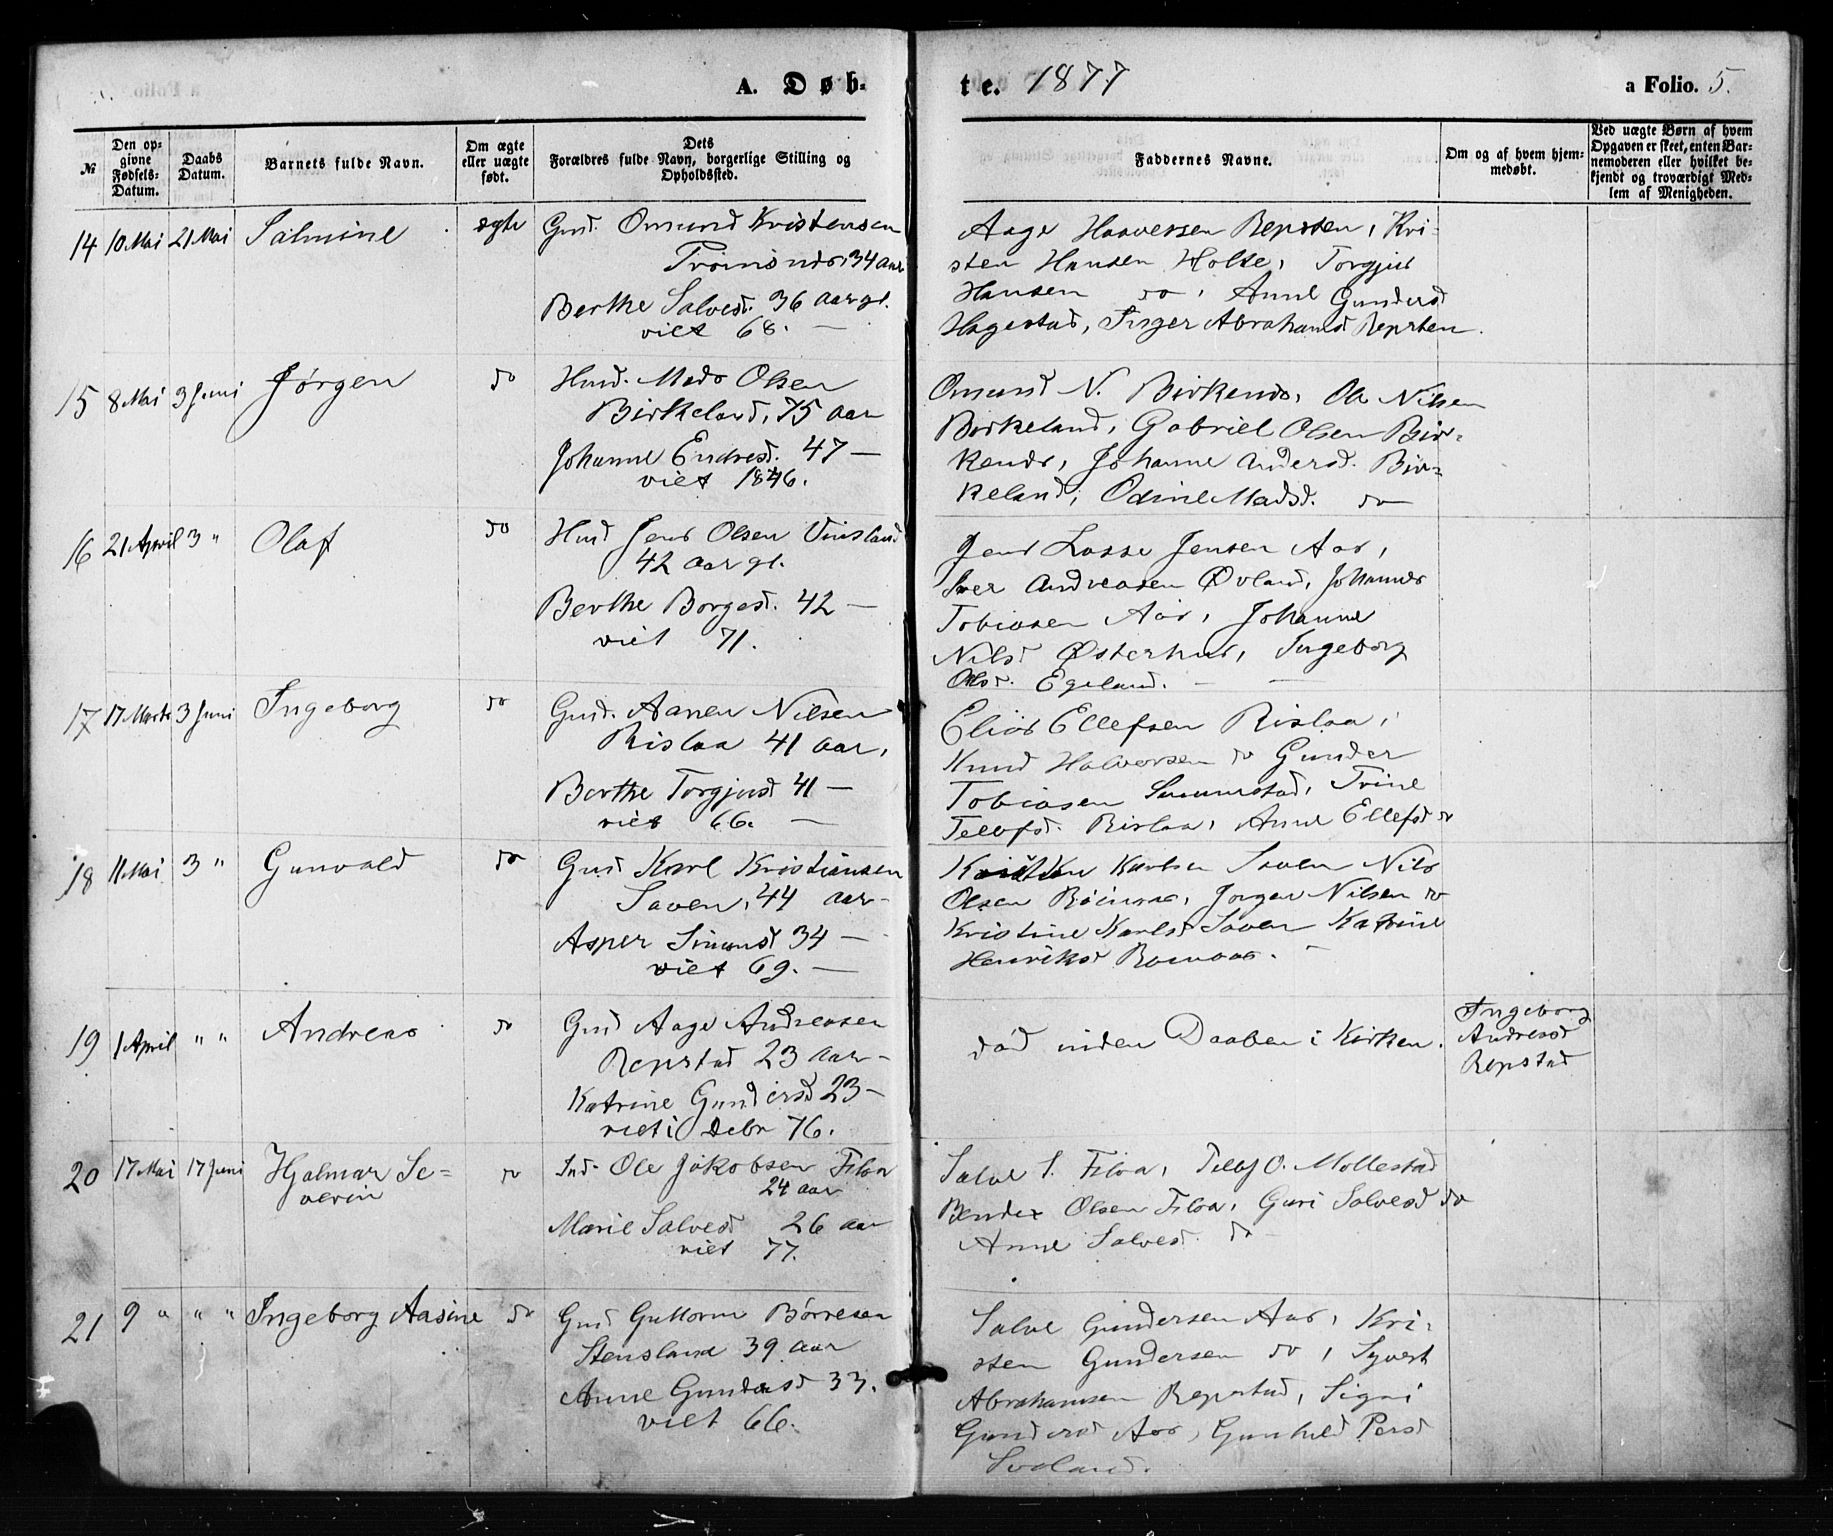 A. Døb-
te. 1877
a Folio. 5.
№
Den op-
givne
Fødsels-
Datum.
Daabs
Datum.
Barnets fulde Navn.
Om ægte
eller uægte
født.
Dets
Forældres fulde Navn, borgerlige Stilling og
Opholdssted.
Faddernes Navne.
Om og af hvem hjem-
medøbt.
Ved uægte Børn af hvem
Opgaven er skeet, enten Bar-
nemoderen eller hvilket be-
kjendt og troværdigt Med-
lem af Menigheden.
14 10 Mai 21 Mai Salmine ægte
Gmd. Omund Kristensen
34 aar
Berthe Salvesd. 36 aar gl.
viet 68. —
Aage Haaversen Repsten, Kri-
sten Hansen Holte, Torgjus
Hansen do, Anne Gundersd
Hagestad, Inger Abrahamsd Repsten.
15 8 Mai 3 Juni Jørgen do
Husd. Mads Olsen
Birkeland, 75 aar
Johanne Endresd. 47 —
viet 1846.
Omund N. Birkends, Ole Nilsen
Birkeland, Gabriel Olsen Bir-
kends, Johanne Andersd. Bir-
keland, Odine Madsd. do
16 21 April 3 " Olaf do
Husd Jens Olsen
42 aar gl.
Berthe Borgesd. 42 —
viet 71.
Jens Lasse Jensen Aas,
Iver Andreasen Øvland, Johannes
Tobiasen Aas, Johanne
Nilsd Østerhus, Ingeborg
Olsd. Egeland. —
17 17 Marts 3 Juni Ingeborg do
Gmd. Aanen Nilsen
Rislaa 41 aar,
Berthe Torgjusd 41 —
viet 66. —
Elias Ellefsen Rislaa,
Knud Halvorsen do Gunder
Tobiasen Trine
Tellefsd. Rislaa, Anne Ellefsd do
18 11 Mai 3 " Gunvald do
Gmd Karl Kristiansen
Saven, 44 aar
Asper Simonsd 34 —
viet 69. —
Karlsen Saven Nils
Olsen Jørgen Nilsen do
Kristine Karlsd Saven Katrine
Henriksd
19 1 April " " Andreas do
Gmd Aage Andreasen
Repstad 23 aar —
Katrine Gundersd 23 —
viet i Debr 76.
død inden Daaben i Kirken.
Ingeborg
Andreasd
Repstad
20 17 Mai 17 Juni Hjalmar Se-
verin do
Ind. Ole Jakobsen Filaa
24 aar
Marie Salvesd 26 aar
viet 77.
Salve S. Filaa, Tellef O. Mollestad
Bendix Olsen Filaa, Guri Salvesd do
Anne Salvesd. do
21 9 " " " Ingeborg Aasine do
Gmd Guttorm Børresen
Stensland 39 aar
Anne Gundersd 33.
viet 66.
Salve Gundersen Aas, Kri-
sten Gundersen do, Syvert
Abrahamsen Repstad, Signi
Gundersd Aas, Gunhild Persd